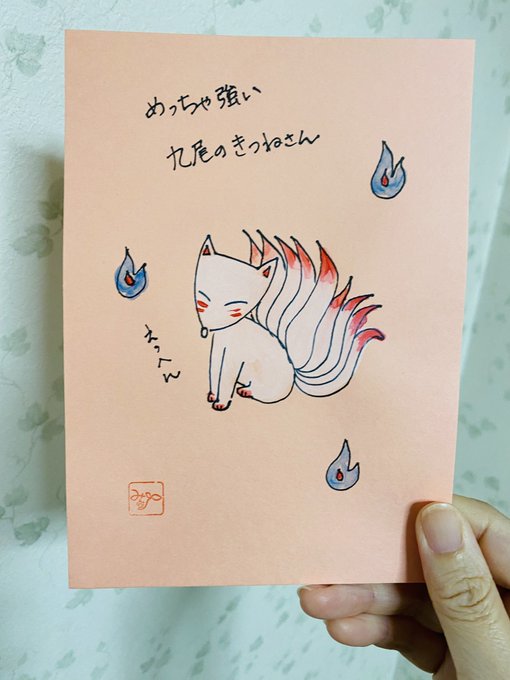 めっちゃ強い
九尾のきつねさん
えっへん